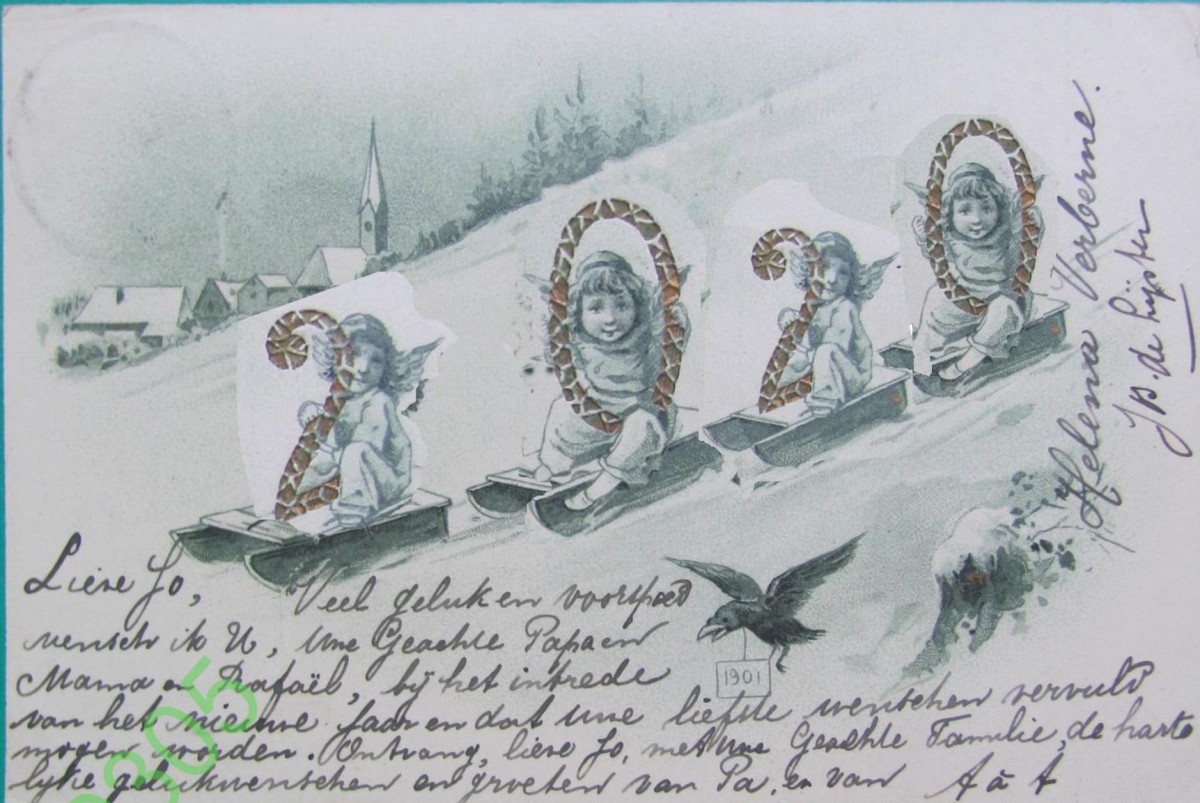 2020
Lieve Jo, Veel geluk en voorspoed
wensch ik U, Uwe Geachte Papa en
Mama en Rafaël, bij het intrede
van het nieuwe Jaar en dat Uwe liefste wenschen vervuld
mogen worden. Ontvang, lieve Jo, met Uwe Geachte Familie, de harte
lijke gelukwenschen en groeten van Pa, en van
1901
Helena Verberne.
8305